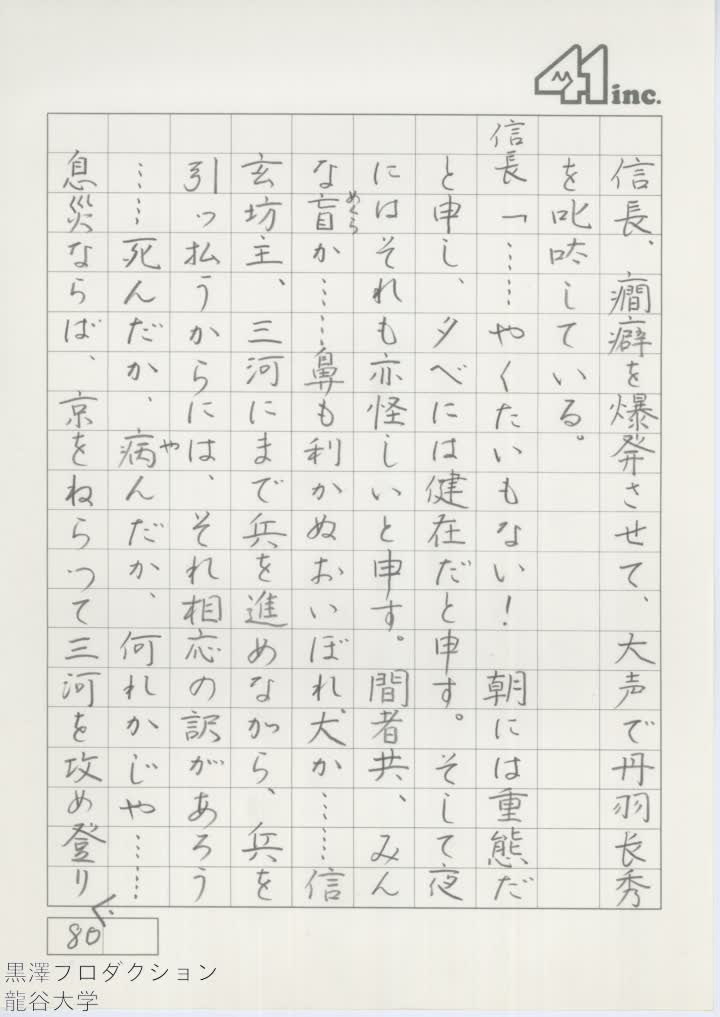 41 inc.
信長、癇癖を爆発させて、大声で丹羽長秀
を叱咤している。
信長「……やくたいもない！　朝には重態だ
と申し、夕べには健在だと申す。そして夜
にはそれも亦怪しいと申す。間者共、みん
な盲か……鼻も利かぬおいぼれ犬か……信
めくら
玄坊主、三河にまで兵を進めながら、兵を
引ッ払うからには、それ相応の訳があろう
……死んだか、病んだか、何れかじゃ……
や
息災ならば、京をねらって三河を攻め登り
80
黒澤プロダクション
龍谷大学